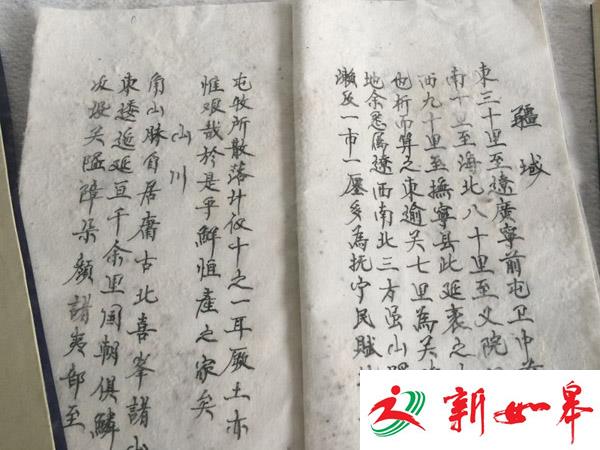 疆域
東三十里至遼廣寧前屯卫中前
南十里至海北八十里至义院
西九十里至撫寧县此延袤之
也折而算之東逾关七里為关
地余悉属遼西南北三方虽山
瀕反一市一廛多為抚宁民賦
屯牧所散落計仅十之一耳厥土亦
惟艰哉於是乎鮮恒產之家矣
山川
角山脉自居庸古北喜峯諸山
東逶迤延亘千余里国朝俱
次設关隘障朶顏諸夷部至
新如皋